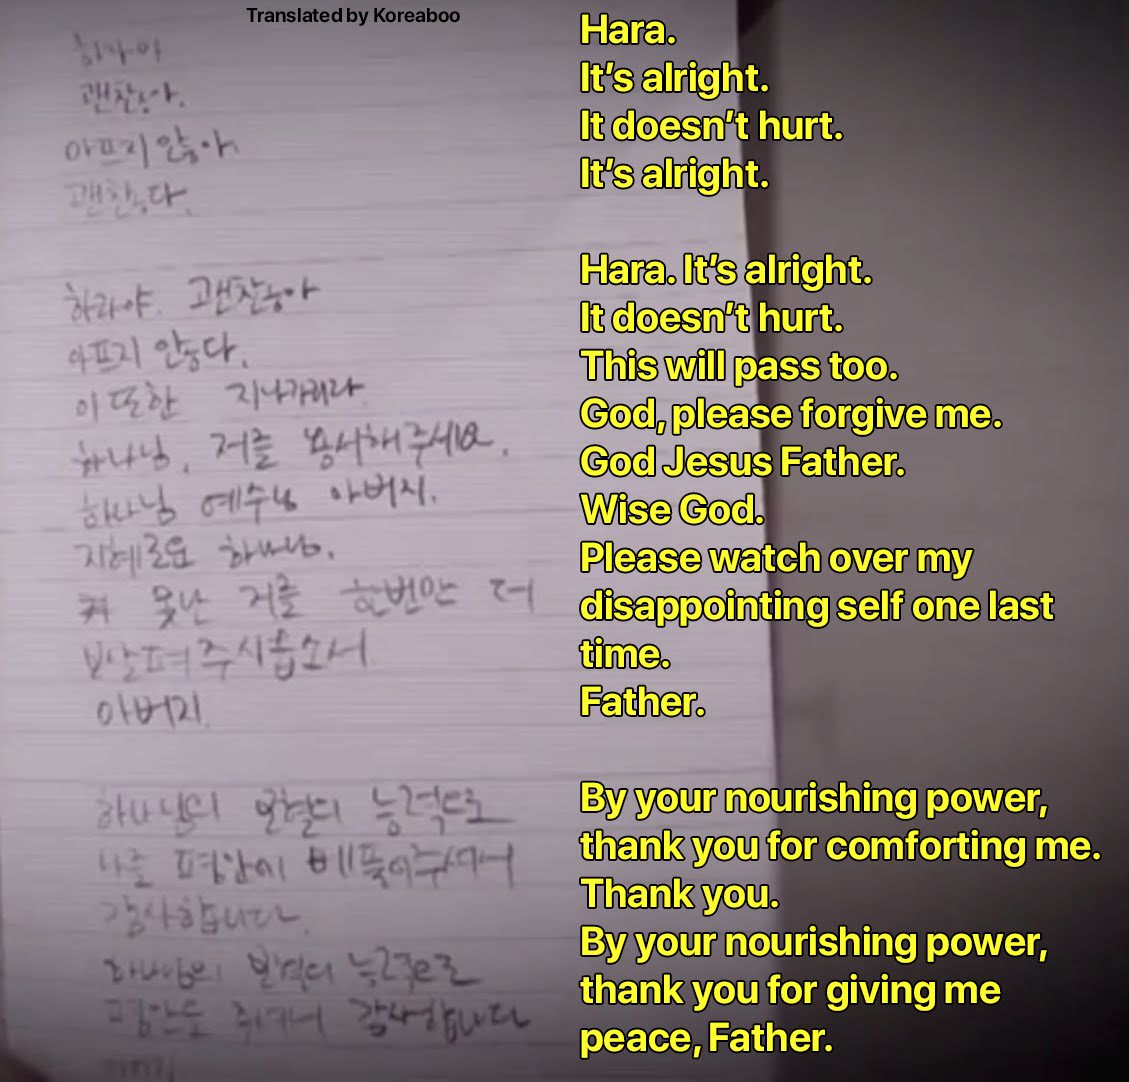 Translated by Koreaboo
하라야
괜찮아.
아프지 않아.
괜찮다.
하라야. 괜찮아
아프지 않다.
이 또한 지나가리라
하나님, 저를 용서해주세요.
하나님 예수님 아버지.
지혜로운 하나님.
못난 저를 한번만 더
보살펴주시옵소서
아버지.
하나님의 보혈의 능력으로
나를 평안히 베풀어주셔서
감사합니다.
하나님의 보혈의 능력으로
평안을 주셔서 감사합니다
Hara.
It's alright.
It doesn't hurt.
It's alright.
Hara. It's alright.
It doesn't hurt.
This will pass too.
God, please forgive me.
God Jesus Father.
Wise God.
Please watch over my
disappointing self one last
time.
Father.
By your nourishing power,
thank you for comforting me.
Thank you.
By your nourishing power,
thank you for giving me
peace, Father.